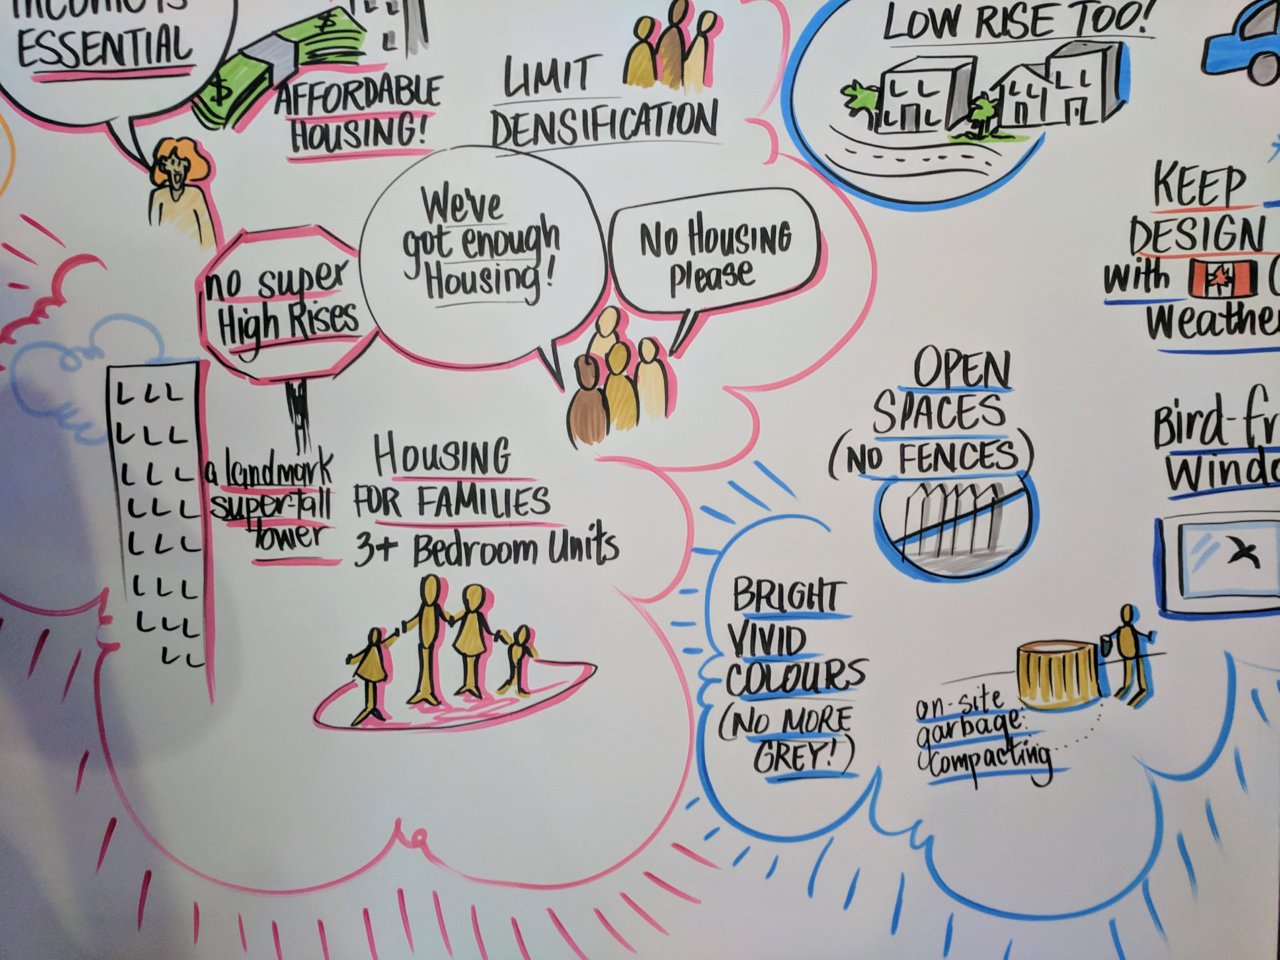 ESSENTIAL
AFFORDABLE
HOUSING!
LIMIT
DENSIFICATION
We've
got enough
Housing!
No Housing
please
no super
High Rises
a landmark
super-tall
tower
Housing
FOR FAMILIES
3+ Bedroom Units
LOW RISE TOO!
KEEP
DESIGN
with
Weather
OPEN
SPACES
(NO FENCES)
Bird-fr
Windo
BRIGHT
VIVID
COLOURS
(NO MORE
GREY!)
on-site
garbage
compacting